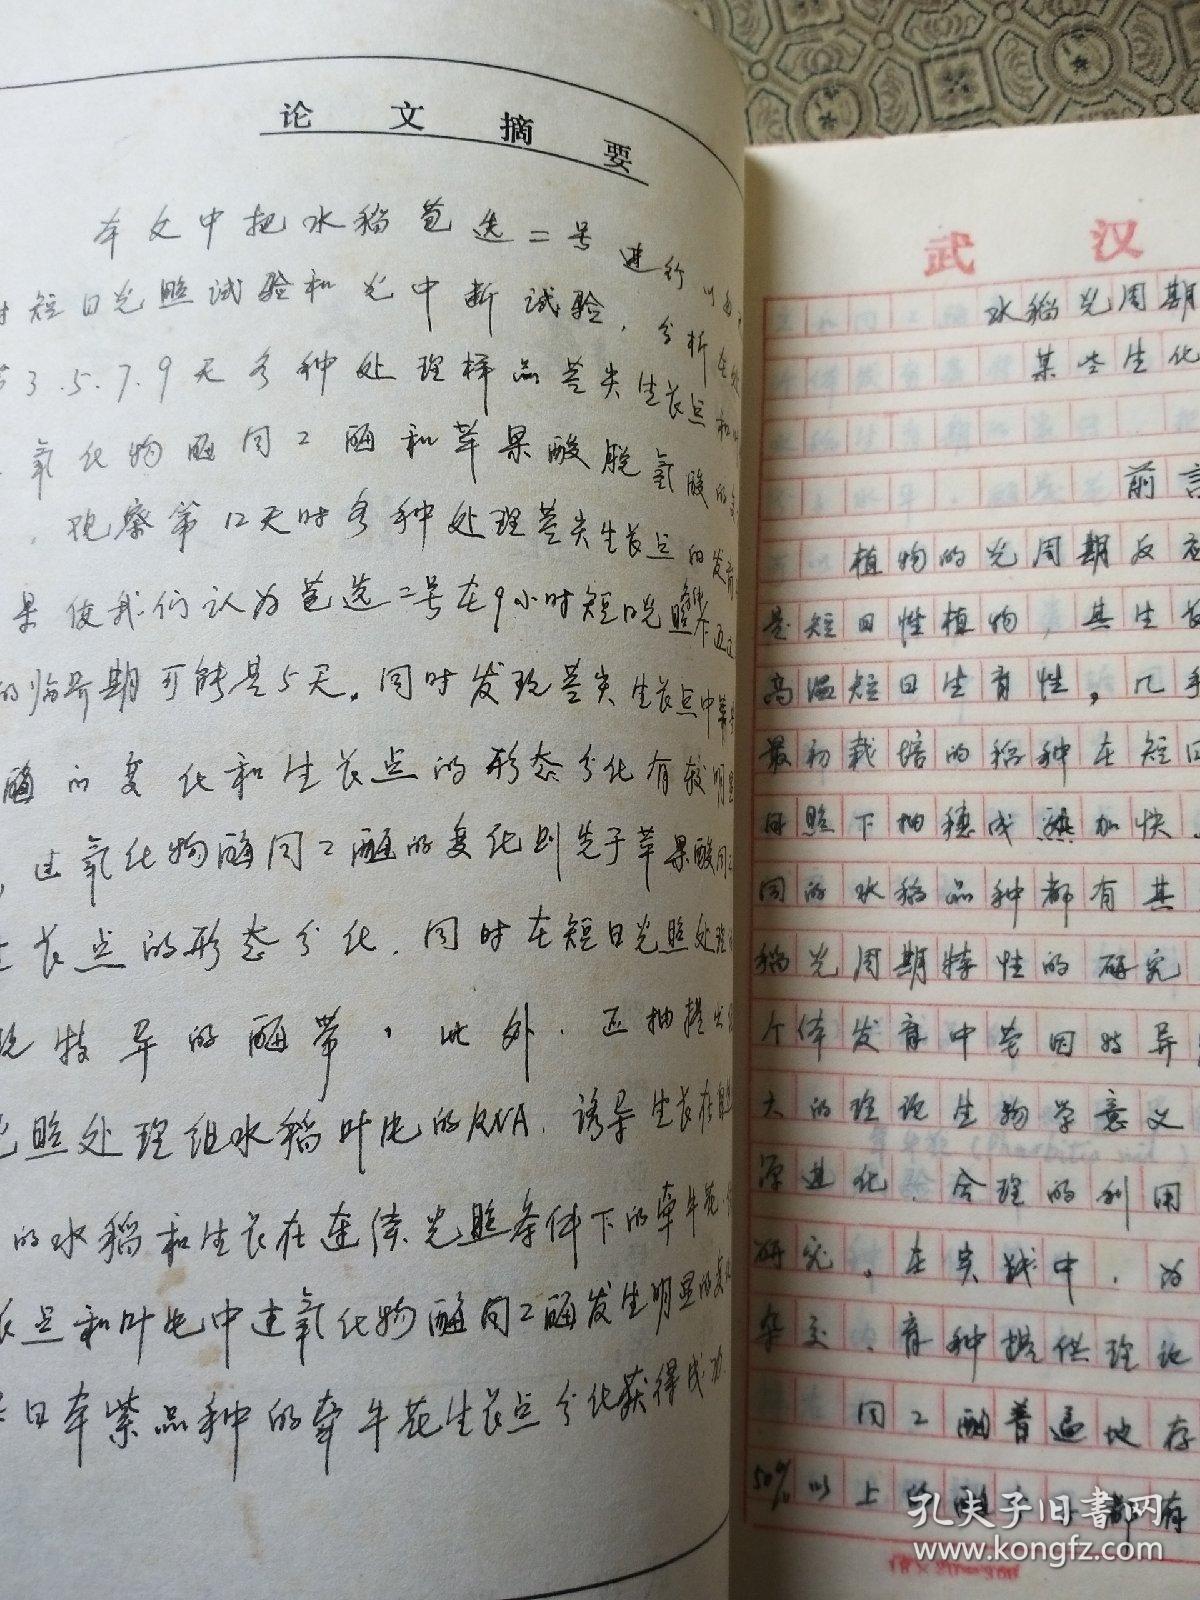 论文摘要
本文中把水稻苞选二号进行
短日光照试验和光中断试验，分析在处
3.5.7.9天各种处理样品茎尖生长点和
氧化物酶同工酶和苹果酸脱氢酸的变
观察第12天时各种处理茎尖生长点的发育
果使我们认为苞选二号在9小时短日光照下
的临界期可能是5天。同时发现茎尖生长点中
酶的变化和生长点的形态分化有较明显
过氧化物酶同工酶的变化则先于苹果酸同工
长点的形态分化.同时在短日光照处理
现特异的酶带，此外.还抽提
照处理组水稻叶片的RNA.诱导生长在
的水稻和生长在连续光照条件下的牵牛花
点和叶片中过氧化物酶同工酶发生明显的变化
日本紫品种的牵牛花生长点分化获得成功
武汉
水稻光周期
某些生化
前言
植物的光周期反应
是短日性植物，其生长
高温短日生育性，几乎
最初栽培的稻种在短日
日照下抽穗成熟加快
同的水稻品种都有其
稻光周期特性的研究
个体发育中基因特异
大的理论生物学意义
源进化，合理的利用
研究。在实践中，为
杂交.育种提供理论
同工酶普遍地存
50%以上的酶 都有
18×20=360
孔夫子旧书网
www.kongfz.com